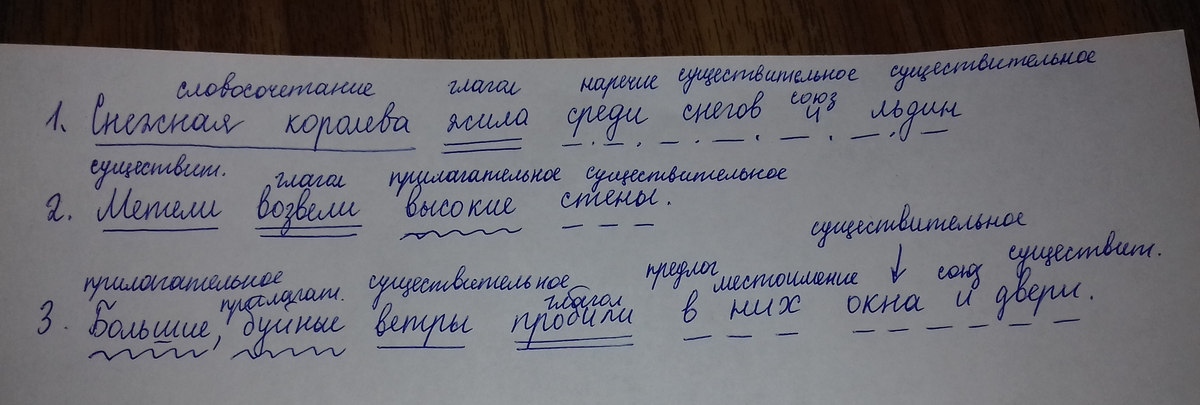 словосочетание глагол наречие существительное существительное
союз
1. Снежная королева жила среди снегов и льдин
существит. глагол прилагательное существительное
2. Метели возвели высокие стены.
существительное
прилагательное прилагат. существительное глагол предлог местоимение союз существит.
3. Большие, буйные ветры пробили в них окна и двери.